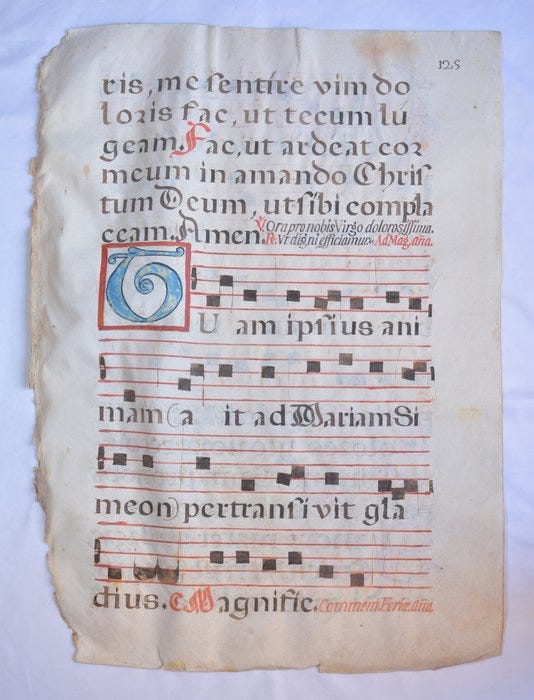 125
ris, me sentire vim do
loris fac, ut tecum lu
geam. Fac, ut ardeat cor
meum in amando Chris
tum Deum, ut sibi compla
ceam. Amen. ℣. Ora pro nobis Virgo dolorosissima.
℟. Vt digni efficiamur. Ad Mag. aña.
TUam ipsius ani
mam (a it ad Mariam Si
meon) pertransivit gla
dius. Magnific. Commem. Feriæ. aña.